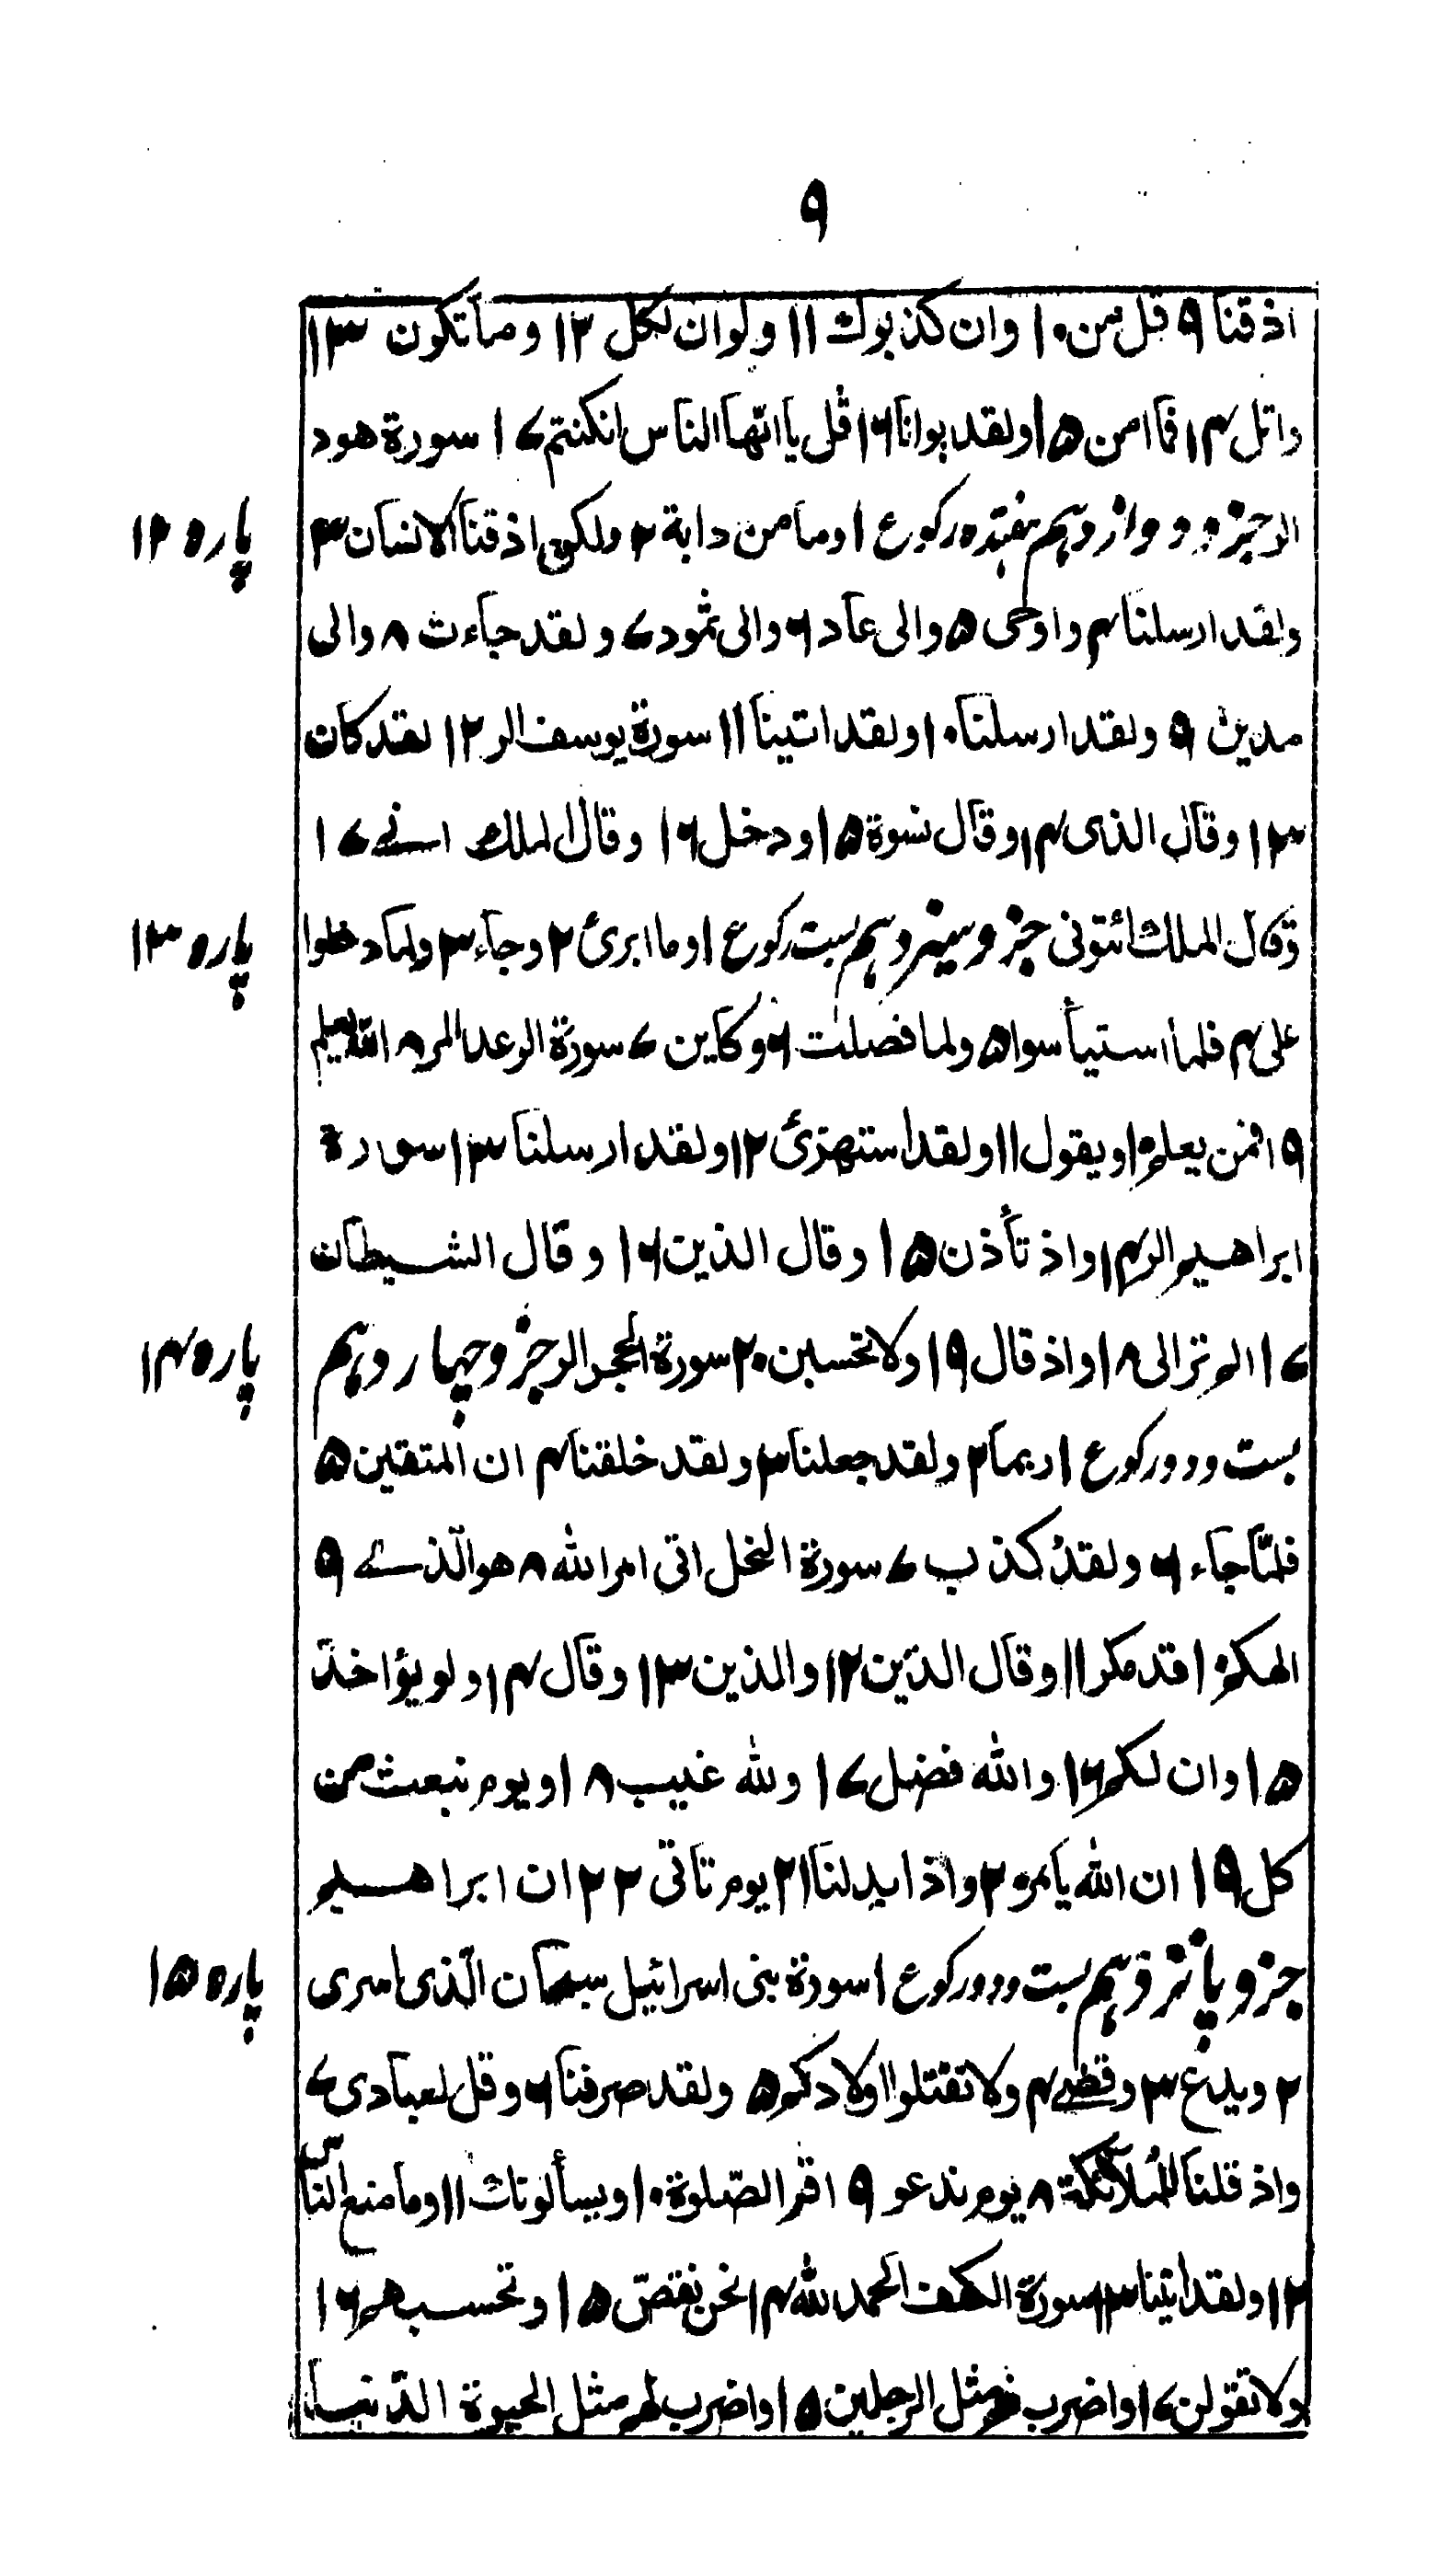 ۹
اذقنا ۹ قل من ۱۰ وان کذبوك ۱۱ ولوان لکل ۱۲ وما تکون ۱۳
واتل ۱۴ فما امن ۱۵ ولقد بوانا ۱۶ قل یا ایّها الناس ان کنتم ۱۷ سورة هود
الر جزو دوازدہم ہفتدہ رکوع ۱ وما من دابة ۲ ولئن اذقنا الانسان ۳
پاره ۱۲
ولقد ارسلنا ۴ واوحی ۵ والی عاد ۶ والی ثمود ۷ ولقد جاءت ۸ والی
مدین ۹ ولقد ارسلنا ۱۰ ولقد اتینا ۱۱ سورة یوسف الر ۱۲ لقد کان
۱۳ وقال الذی ۱۴ وقال نسوة ۱۵ ودخل ۱۶ وقال الملك انے ۱۷
وقال الملك ائتونی جزو سیزدہم بست رکوع ۱ وما ابرئ ۲ وجاء ۳ ولما دخلوا
پاره ۱۳
علی ۴ فلما استیأسوا ۵ ولما فصلت ۶ وکاین ۷ سورة الرعد المر ۸ الله یعلم
۹ افمن یعلم ۱۰ ویقول ۱۱ ولقد استهزئ ۱۲ ولقد ارسلنا ۱۳ سورة
ابراهیم الر ۱۴ واذ تأذن ۱۵ وقال الذین ۱۶ وقال الشیطان
۱۷ الم تر الی ۱۸ واذ قال ۱۹ ولا تحسبن ۲۰ سورة الحجر الر جزو چہاردہم
پاره ۱۴
بست ودو رکوع ۱ ربما ۲ ولقد جعلنا ۳ ولقد خلقنا ۴ ان المتقین ۵
فلمّا جاء ۶ ولقد کذب ۷ سورة النحل اتی امر الله ۸ هو الّذے ۹
الهکم ۱۰ قد مکر ۱۱ وقال الذین ۱۲ والذین ۱۳ وقال ۱۴ ولو یؤاخذ
۱۵ وان لکم ۱۶ والله فضل ۱۷ ولله غیب ۱۸ ویوم نبعث من
کل ۱۹ ان الله یامر ۲۰ واذا بدلنا ۲۱ یوم تاتی ۲۲ ان ابراهیم
جزو پانزدہم بست ودو رکوع ۱ سورة بنی اسرائیل سبحان الّذی اسری
پاره ۱۵
۲ ویدع ۳ وقضے ۴ ولا تقتلوا اولادکم ۵ ولقد صرفنا ۶ وقل لعبادی ۷
واذ قلنا للملآئکة ۸ یوم ندعو ۹ اقم الصّلوة ۱۰ ویسألونك ۱۱ وما منع النّاس
۱۲ ولقد اتینا ۱۳ سورة الکهف الحمد لله ۱۴ نحن نقصّ ۱۵ وتحسبهم ۱۶
ولا تقولن ۱۷ واضرب لهم مثل الرجلین ۱۵ واضرب لهم مثل الحیوة الدّنیا